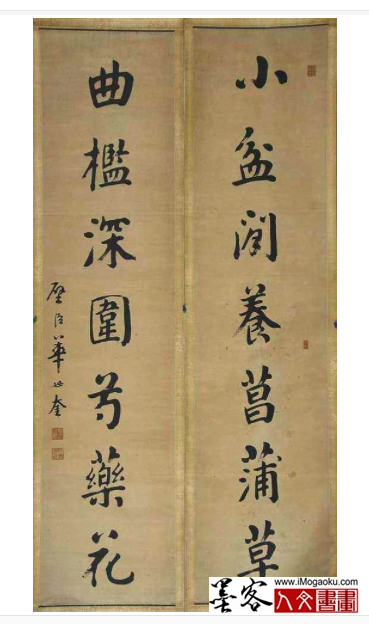 小盆閒養菖蒲草
曲檻深圍芍藥花
璧臣華世奎
墨客
www.iMogaoku.com
人文書畫